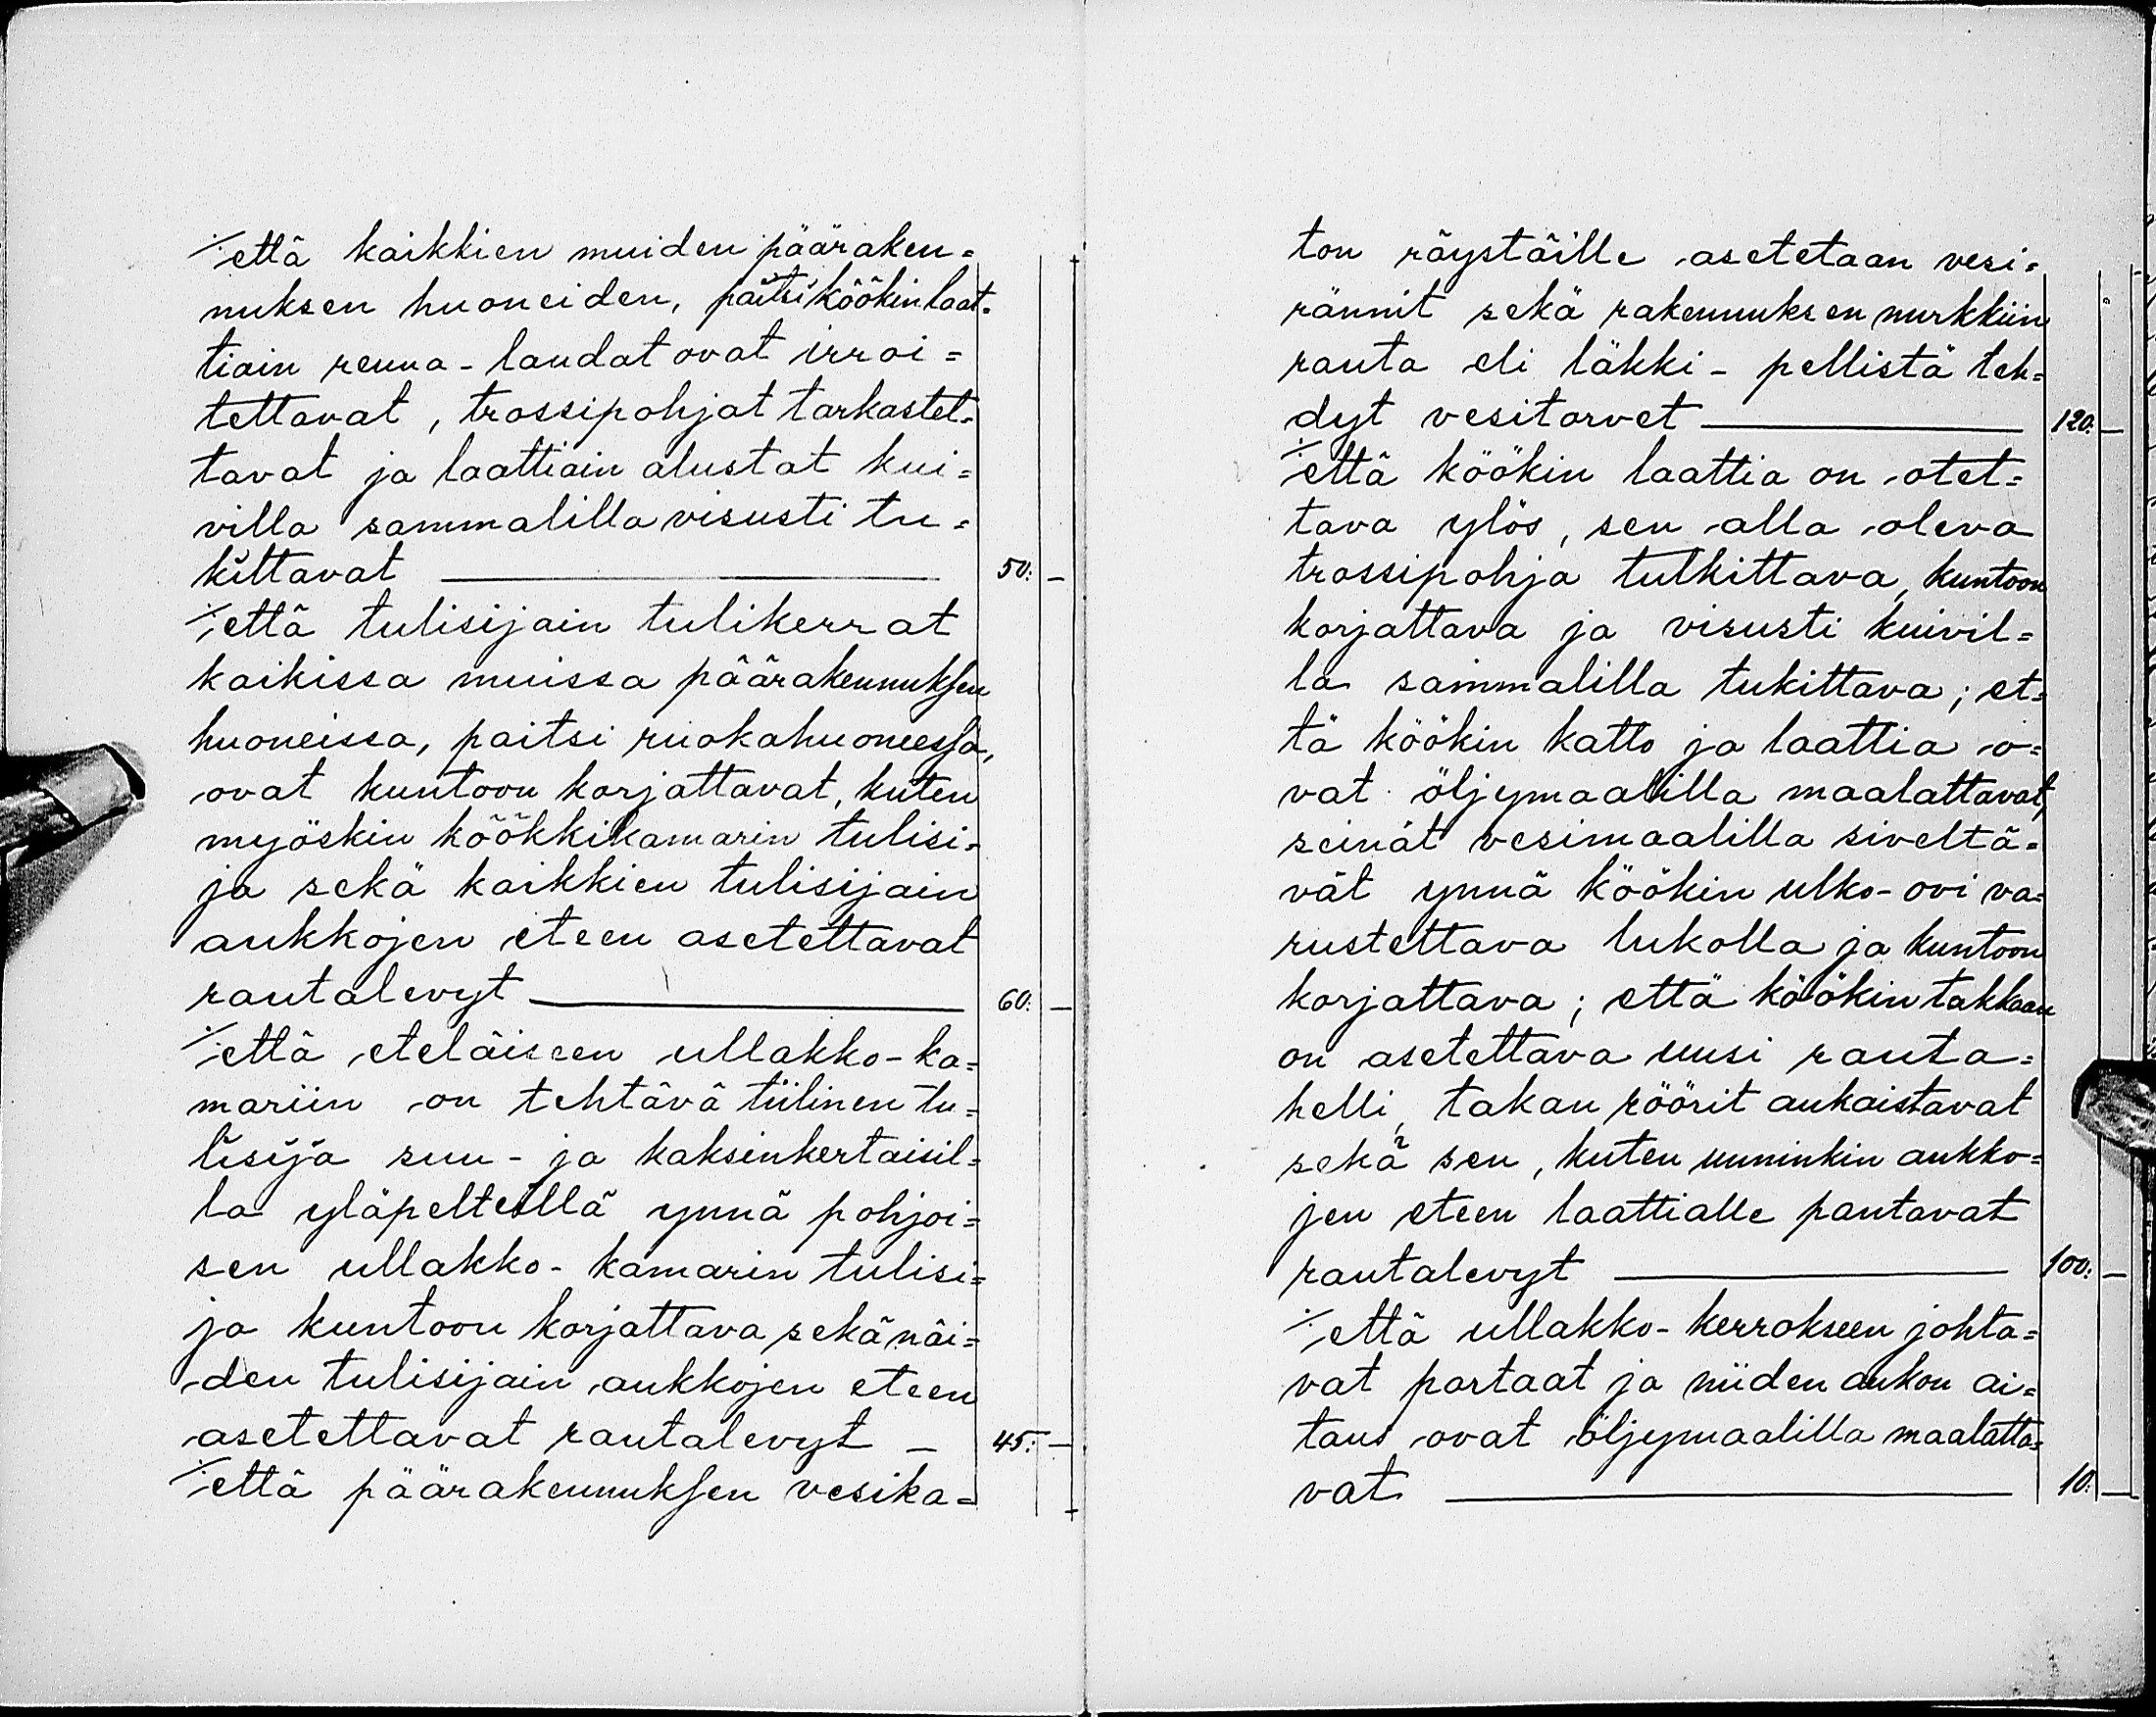 ·/. että kaikkien muiden pääraken=
nuksen huoneiden, paitsi köökin laat=
tiain reuna-laudat ovat irroi=
tettavat, trossipohjat tarkastet=
tavat ja laattiain alustat kui=
villa sammalilla visusti tu=
kittavat — 50: —
·/. että tulisijain tulikerrat
kaikissa muissa päärakennuksen
huoneissa, paitsi ruokahuoneessa,
ovat kuntoon korjattavat, kuten
myöskinköökkikamarin tulisi=
ja sekä kaikkien tulisijain
aukkojen eteen asetettavat
rautalevyt — 60: —
·/. että eteläiseen ullakko-ka=
mariin on tehtävä tiilinen tu=
lisija suu- ja kaksinkertaisil=
la yläpelteillä ynnä pohjoi=
sen ullakko-kamarin tulisi=
ja kuntoon korjattava sekä näi=
den tulisijain aukkojen eteen
asetettavat rautalevyt — 45: —
·/. että päärakennuksen vesika=
ton räystäille asetetaan vesi=
rännit sekä rakennuksen nurkkiin
rauta eli läkki-pellistä teh=
dyt vesitorvet — 120: —
·/. että köökin laattia on otet=
tava ylös, sen alla oleva
trossipohja tutkittava, kuntoon
korjattava ja visusti kuivil=
la sammalilla tukittava; et=
tä köökin katto ja laattia o=
vat öljymaalilla maalattavat,
seinät vesimaalilla siveltä=
vät ynnä köökin ulko-ovi va=
rustettava lukolla ja kuntoon
korjattava; että köökin takkaan
on asetettava uusi rauta=
helli, takan röörit aukaistavat
sekä sen, kuten uuninkin aukko=
jen eteen laattialle pantavat
rautalevyt — 100: —
·/. että ullakko-kerrokseen johta=
vat portaat ja niiden aukon ai=
taus ovat öljymaalilla maalatta=
vat — 10: —